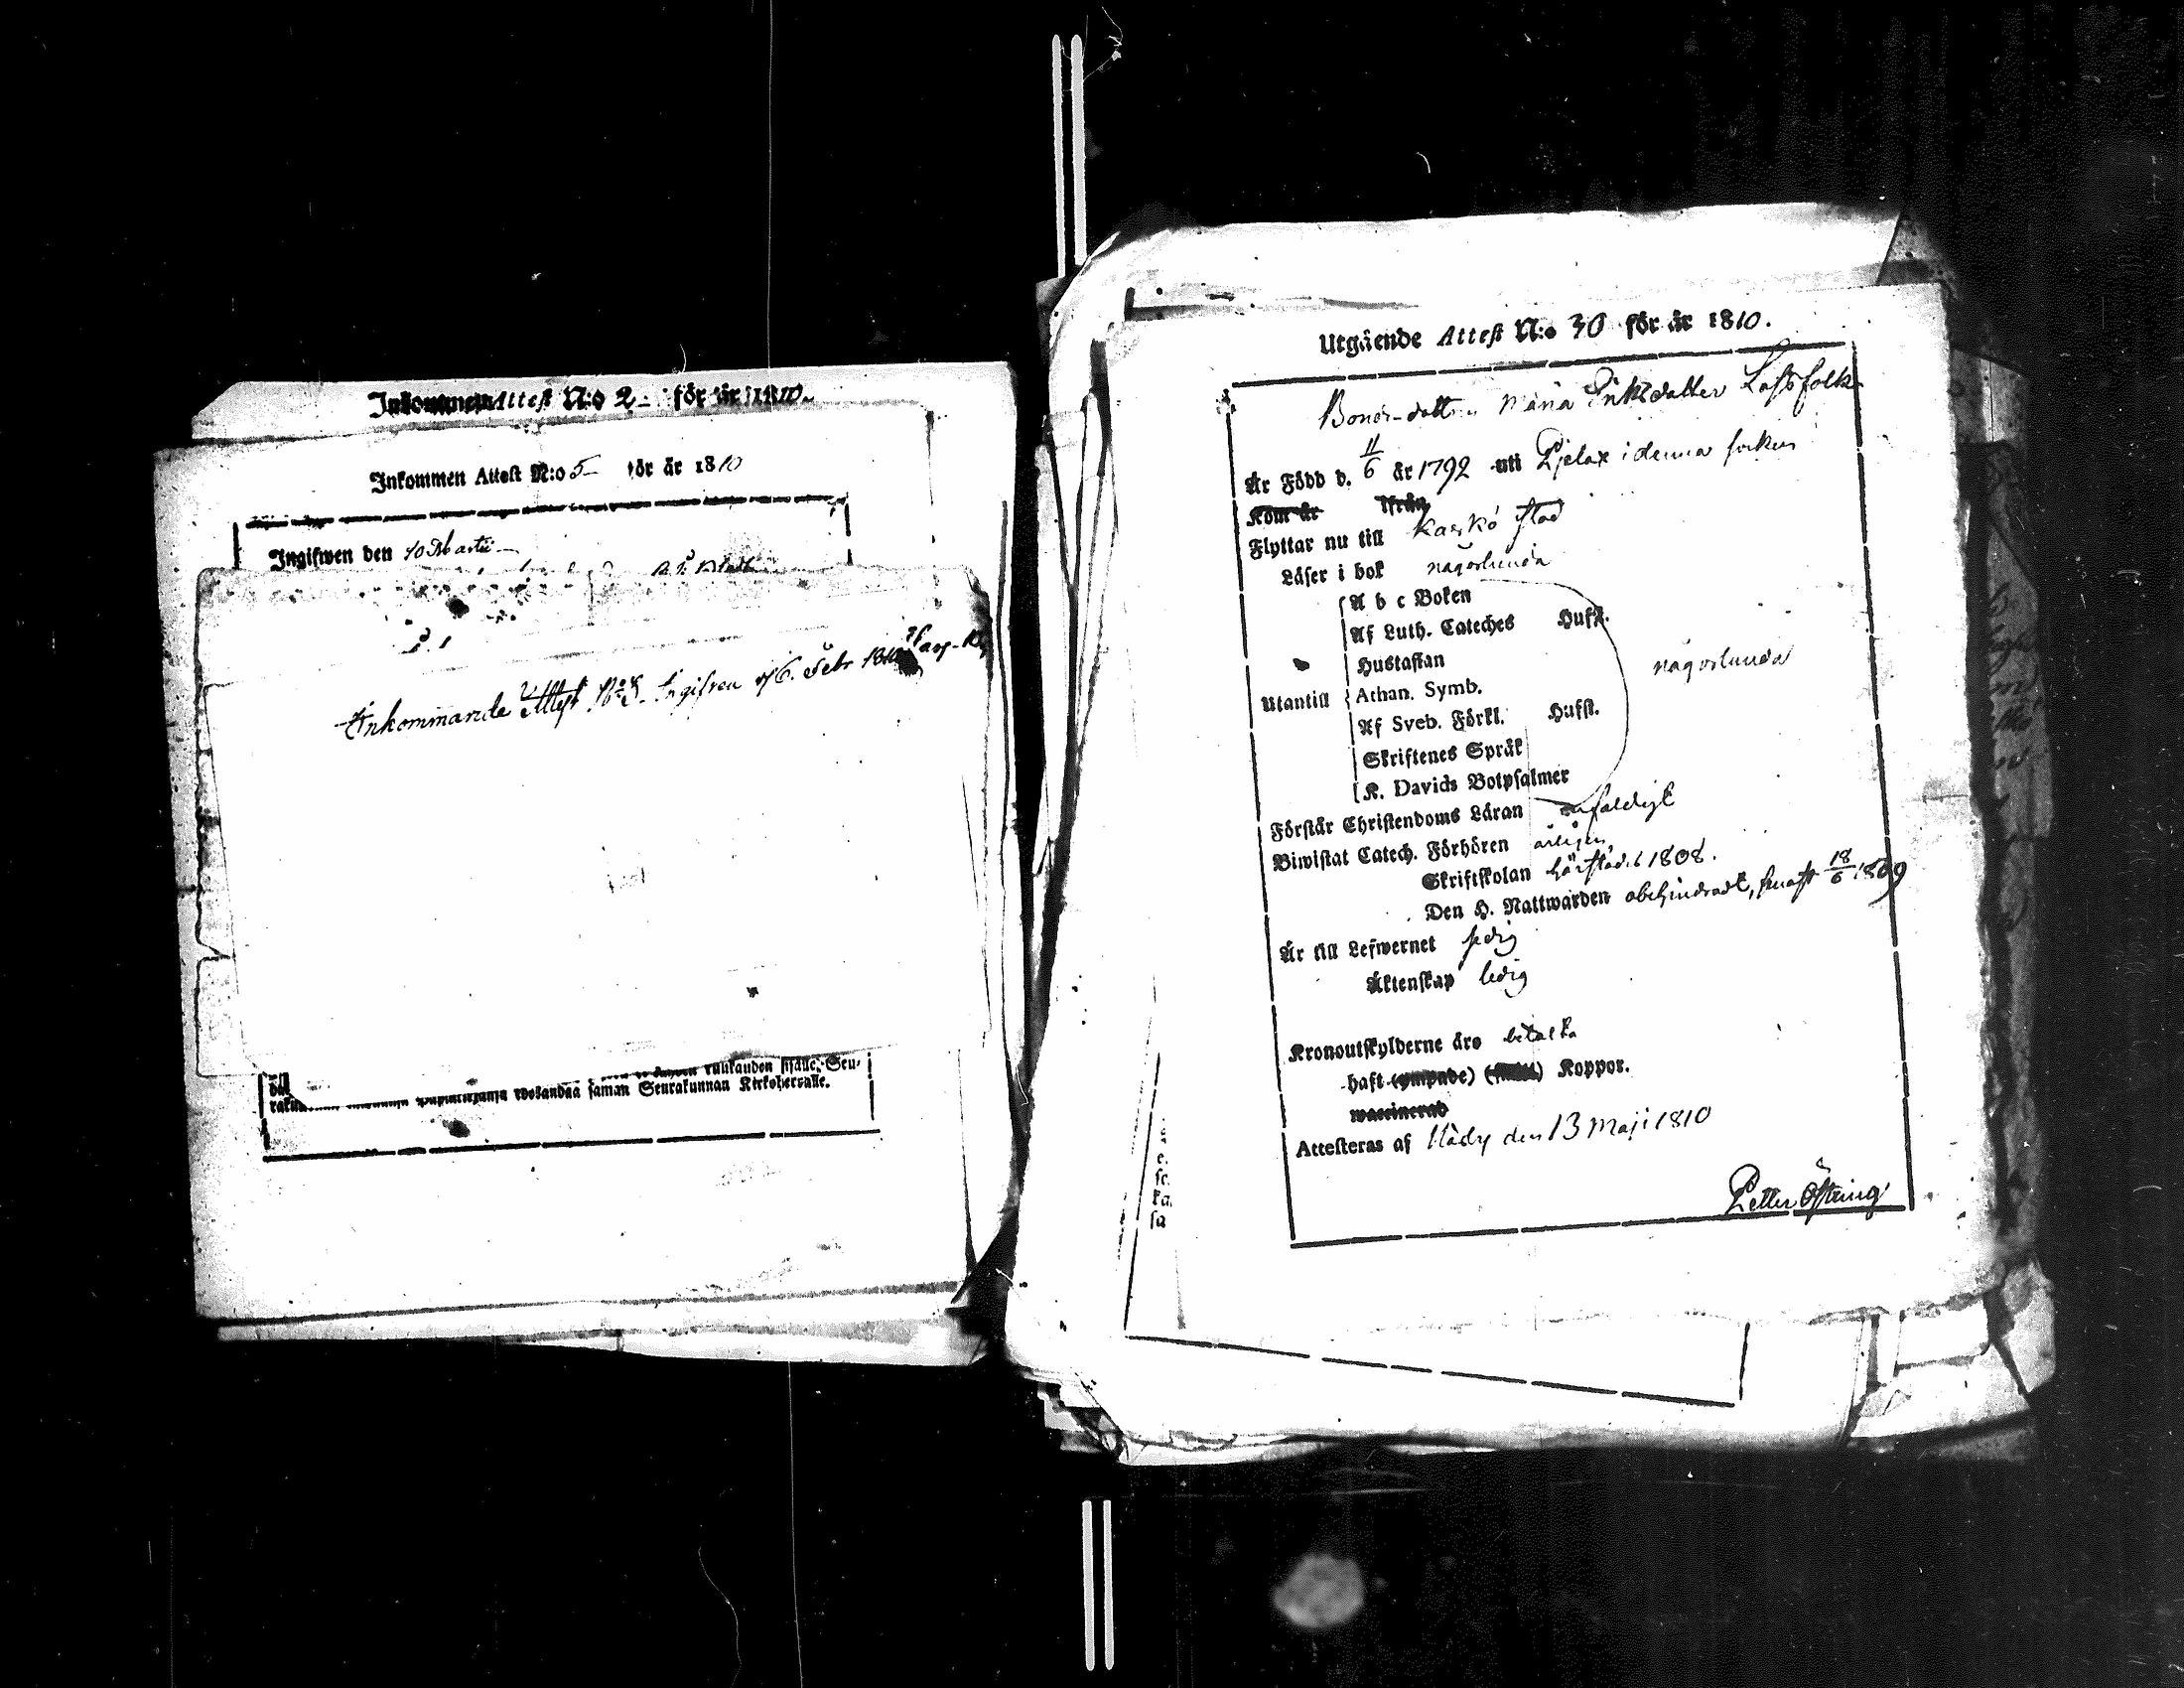 Inkommen Attest N:o 2 för år 1810.
Inkommen Attest N:o 5 för år 1810
Ingifwen den 10 Martii
Inkommande Attest N:o Ingifven d. 6. Febr 1810
ruukauden sisälle, Seu-
wosandaa saman Seurakunnan Kirkoherralle.
Utgående Attest N:o 30 för år 1810.
Bonde-dottren Maria Eriksdotter Lassfolk
Är Född d. 11/6 år 1792 uti Pjelax i denna socken
Kom år ifrån
Flyttar nu till Kaskö stad
Läser i bok någorlunda
A b c Boken
Af Luth. Cateches Hufst.
Hustaflan
någorlunda
Utantill Athan. Symb.
Af Sveb. Förkl. Hufst.
Skriftenes Språk
K. Davids Botpsalmer
Förstår Christendoms Läran enfaldigt
Biwistat Catech. Förhören årligen,
Skriftskolan härstädes 1808.
Den H. Nattwarden obehindradt, senast 18/6 1809
Är till Lefwernet sedig
Äktenskap ledig
Kronoutskylderne äro betalta
haft (ympade) Koppor.
waccinerad
Attesteras af Närpes den 13 Maji 1810
Petter Östring